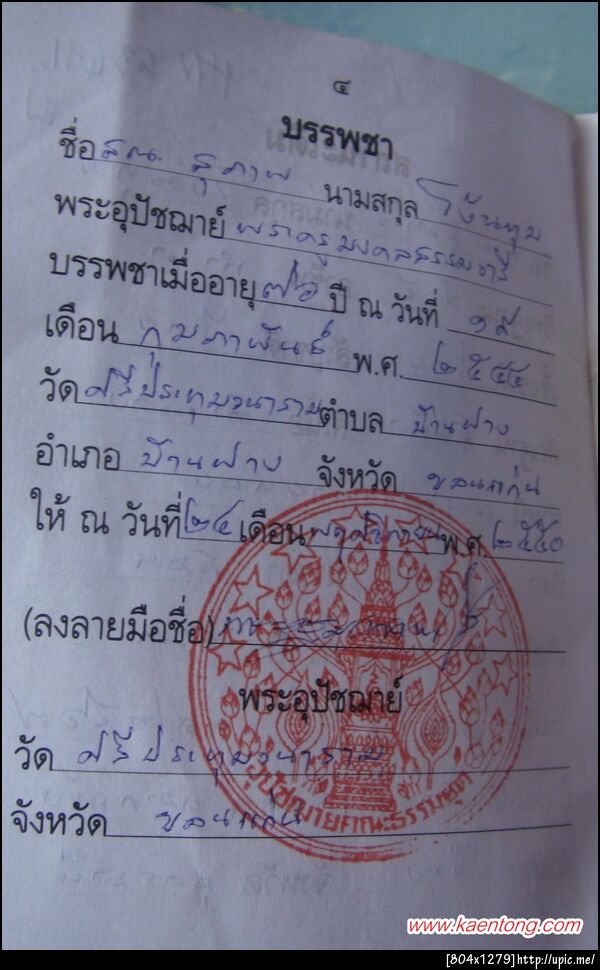 ๔
บรรพชา
ชื่อ สณ. สุภาพ นามสกุล
พระอุปัชฌาย์ พระครูมงคลธรรมธารี
บรรพชาเมื่ออายุ ๗๖ ปี ณ วันที่ ๑๙
เดือน กุมภาพันธ์ พ.ศ. ๒๕๔๔
วัด ศรีประทุมวนาราม ตำบล บ้านฝาง
อำเภอ บ้านฝาง จังหวัด ขอนแก่น
ให้ ณ วันที่ ๒๔ เดือน พฤศจิกายน พ.ศ. ๒๕๕๐
(ลงลายมือชื่อ)
พระอุปัชฌาย์
วัด ศรีประทุมวนาราม
อุปัชฌาย์คณะธรรมยุต
จังหวัด ขอนแก่น
www.kaentong.com
[804x1279]http://upic.me/